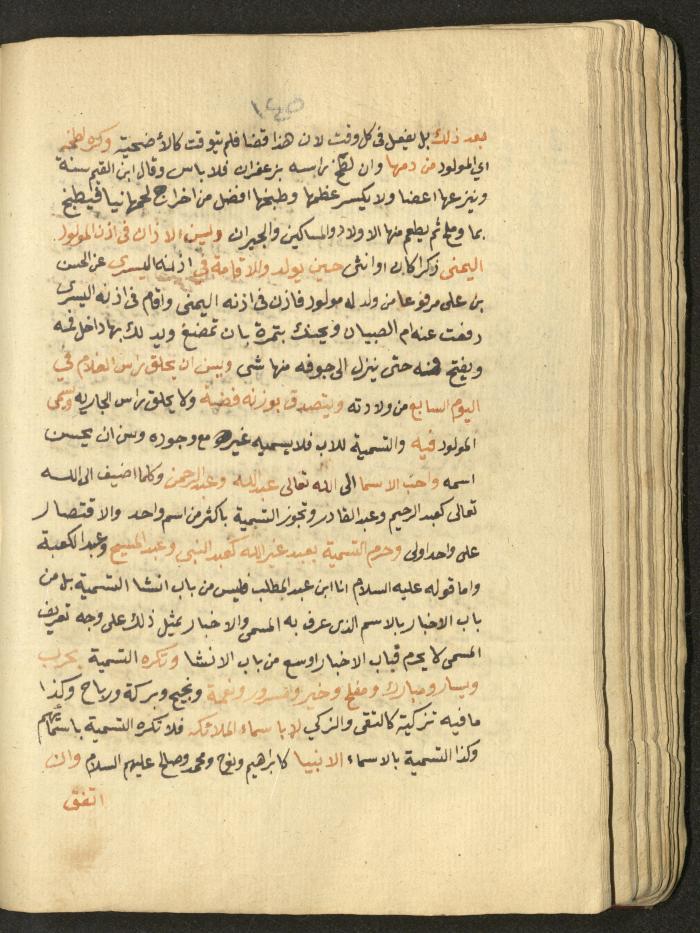 ١٤٥
بعد ذلك بل يفعل في كل وقت لان هذا قضا فلم يتوقت كالأضحية وكره لطخه
اي المولود من دمها وان لطخ راسه بزعفران فلا باس وقال ابن القيم سنة
وينزعها اعضا ولا يكسر عظمها وطبخها افضل من اخراج لحمها نيا فيطبخ
بما وملح ثم يطعم منها الاولاد والمساكين والجيران وليسن الاذان في اذن المولود
اليمنى ذكرا كان او انثى حين يولد والاقامة في اذنه اليسرى عن الحسن
بن على مرفوعا من ولد له مولود فاذن في اذنه اليمنى واقام في اذنه اليسرى
رفعت عنه ام الصبيان ويحنك بتمرة بان تمضغ ويدلك بها داخل فمه
ويفتح فمه حتى ينزل الى جوفه منها شى ويسن ان يحلق راس الغلام في
اليوم السابع من ولادته ويتصدق بوزنه فضة ولا يحلق راس الجارية ويسمى
المولود فيه والتسمية للاب فلا يسميه غيره مع وجوده وسن ان يحسن
اسمه واحب الاسما الى الله تعالى عبد الله وعبد الرحمن وكلما اضيف الى الله
تعالى كعبد الرحيم وعبد القادر وتجوز التسمية باكثر من اسم واحد والاقتصار
على واحد اولى وحرم التسمية بعبد غير الله كعبد النبي وعبد المسيح وعبد الكعبة
واما قوله عليه السلام انا ابن عبد المطلب فليس من باب انشا التسمية بل من
باب الاخبار بالاسم الذي عرف به المسمى والاخبار بمثل ذلك على وجه تعريف
المسمى لا يحرم فباب الاخبار اوسع من باب الانشا وتكره التسمية بحرب
ويسار ومبارك ومفلح وخير وسرور ونعمة ونجيح وبركة ورباح وكذا
ما فيه تزكية كالتقى والزكي لا باسماء الملائكة فلا تكره التسمية باسمائهم
وكذا التسمية بالاسماء الانبيا كابراهيم ونوح ومحمد وصالح عليهم السلام وان
اتفق